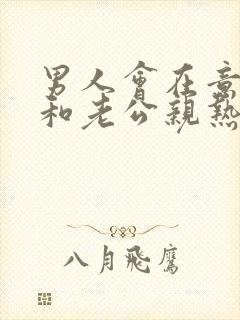 男人會在意
和老公親熱
八月飛鷹